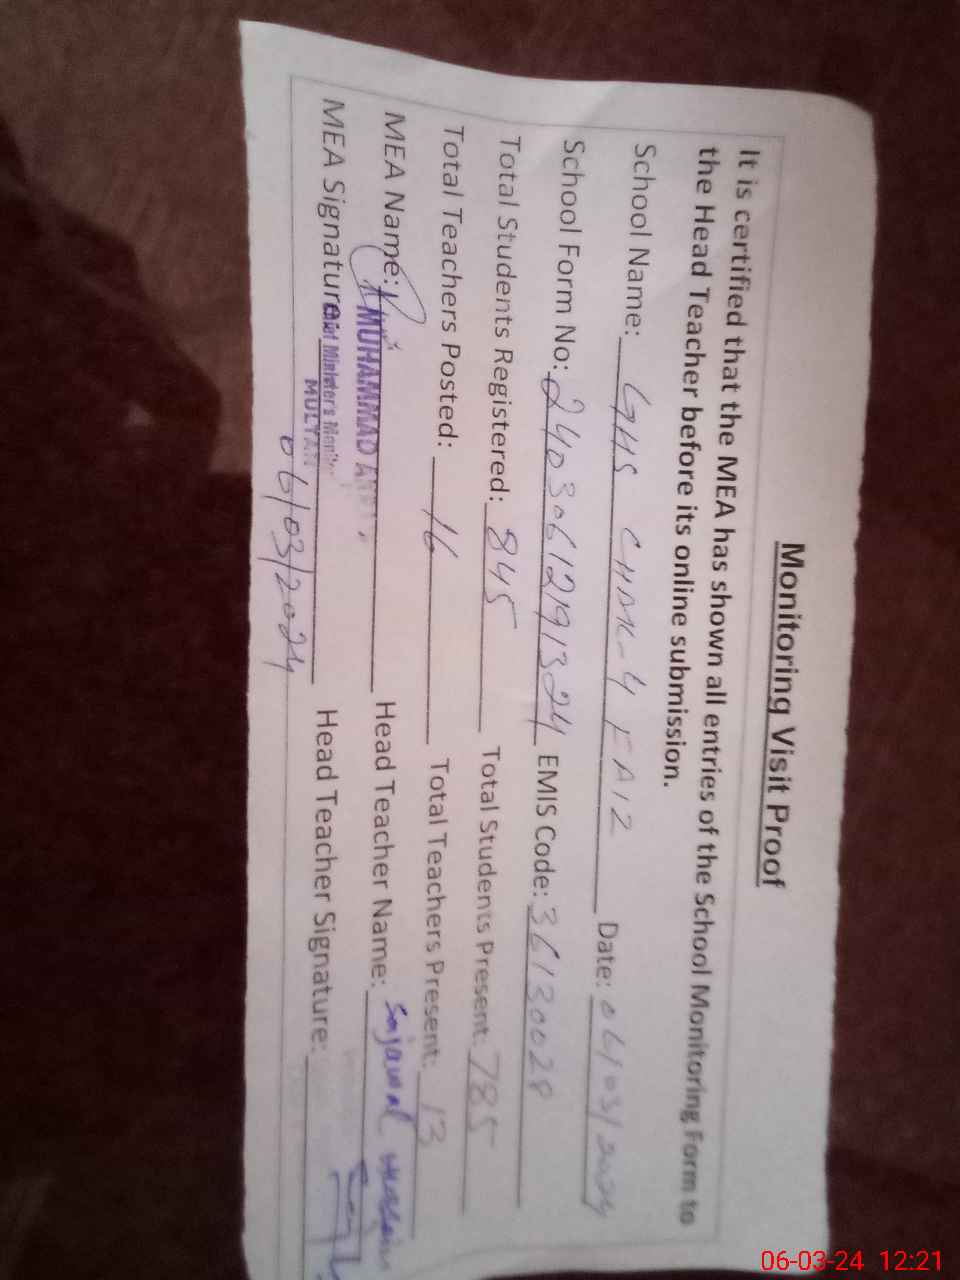 Monitoring Visit Proof
It is certified that the MEA has shown all entries of the School Monitoring Form to
the Head Teacher before its online submission.
School Name: GHS CHAK-4 FAIZ Date: 06/03/2024
School Form No: 24030612191324 EMIS Code: 36130028
Total Students Registered: 845 Total Students Present: 785
Total Teachers Posted: 16 Total Teachers Present: 13
MEA Name: MUHAMMAD Head Teacher Name: Sajawal Hussain
MEA Signature: Chief Minister's Head Teacher Signature:
MULTAN
06/03/2024
06-03-24 12:21